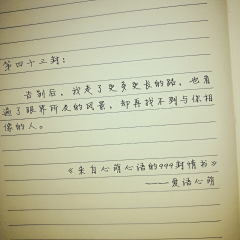 第四十三封：
告别后，我走了更多更长的路，也看
遍了眼界所及的风景，却再找不到与你相
像的人。
《来自心萌心语的999封情书》
——爱语心萌